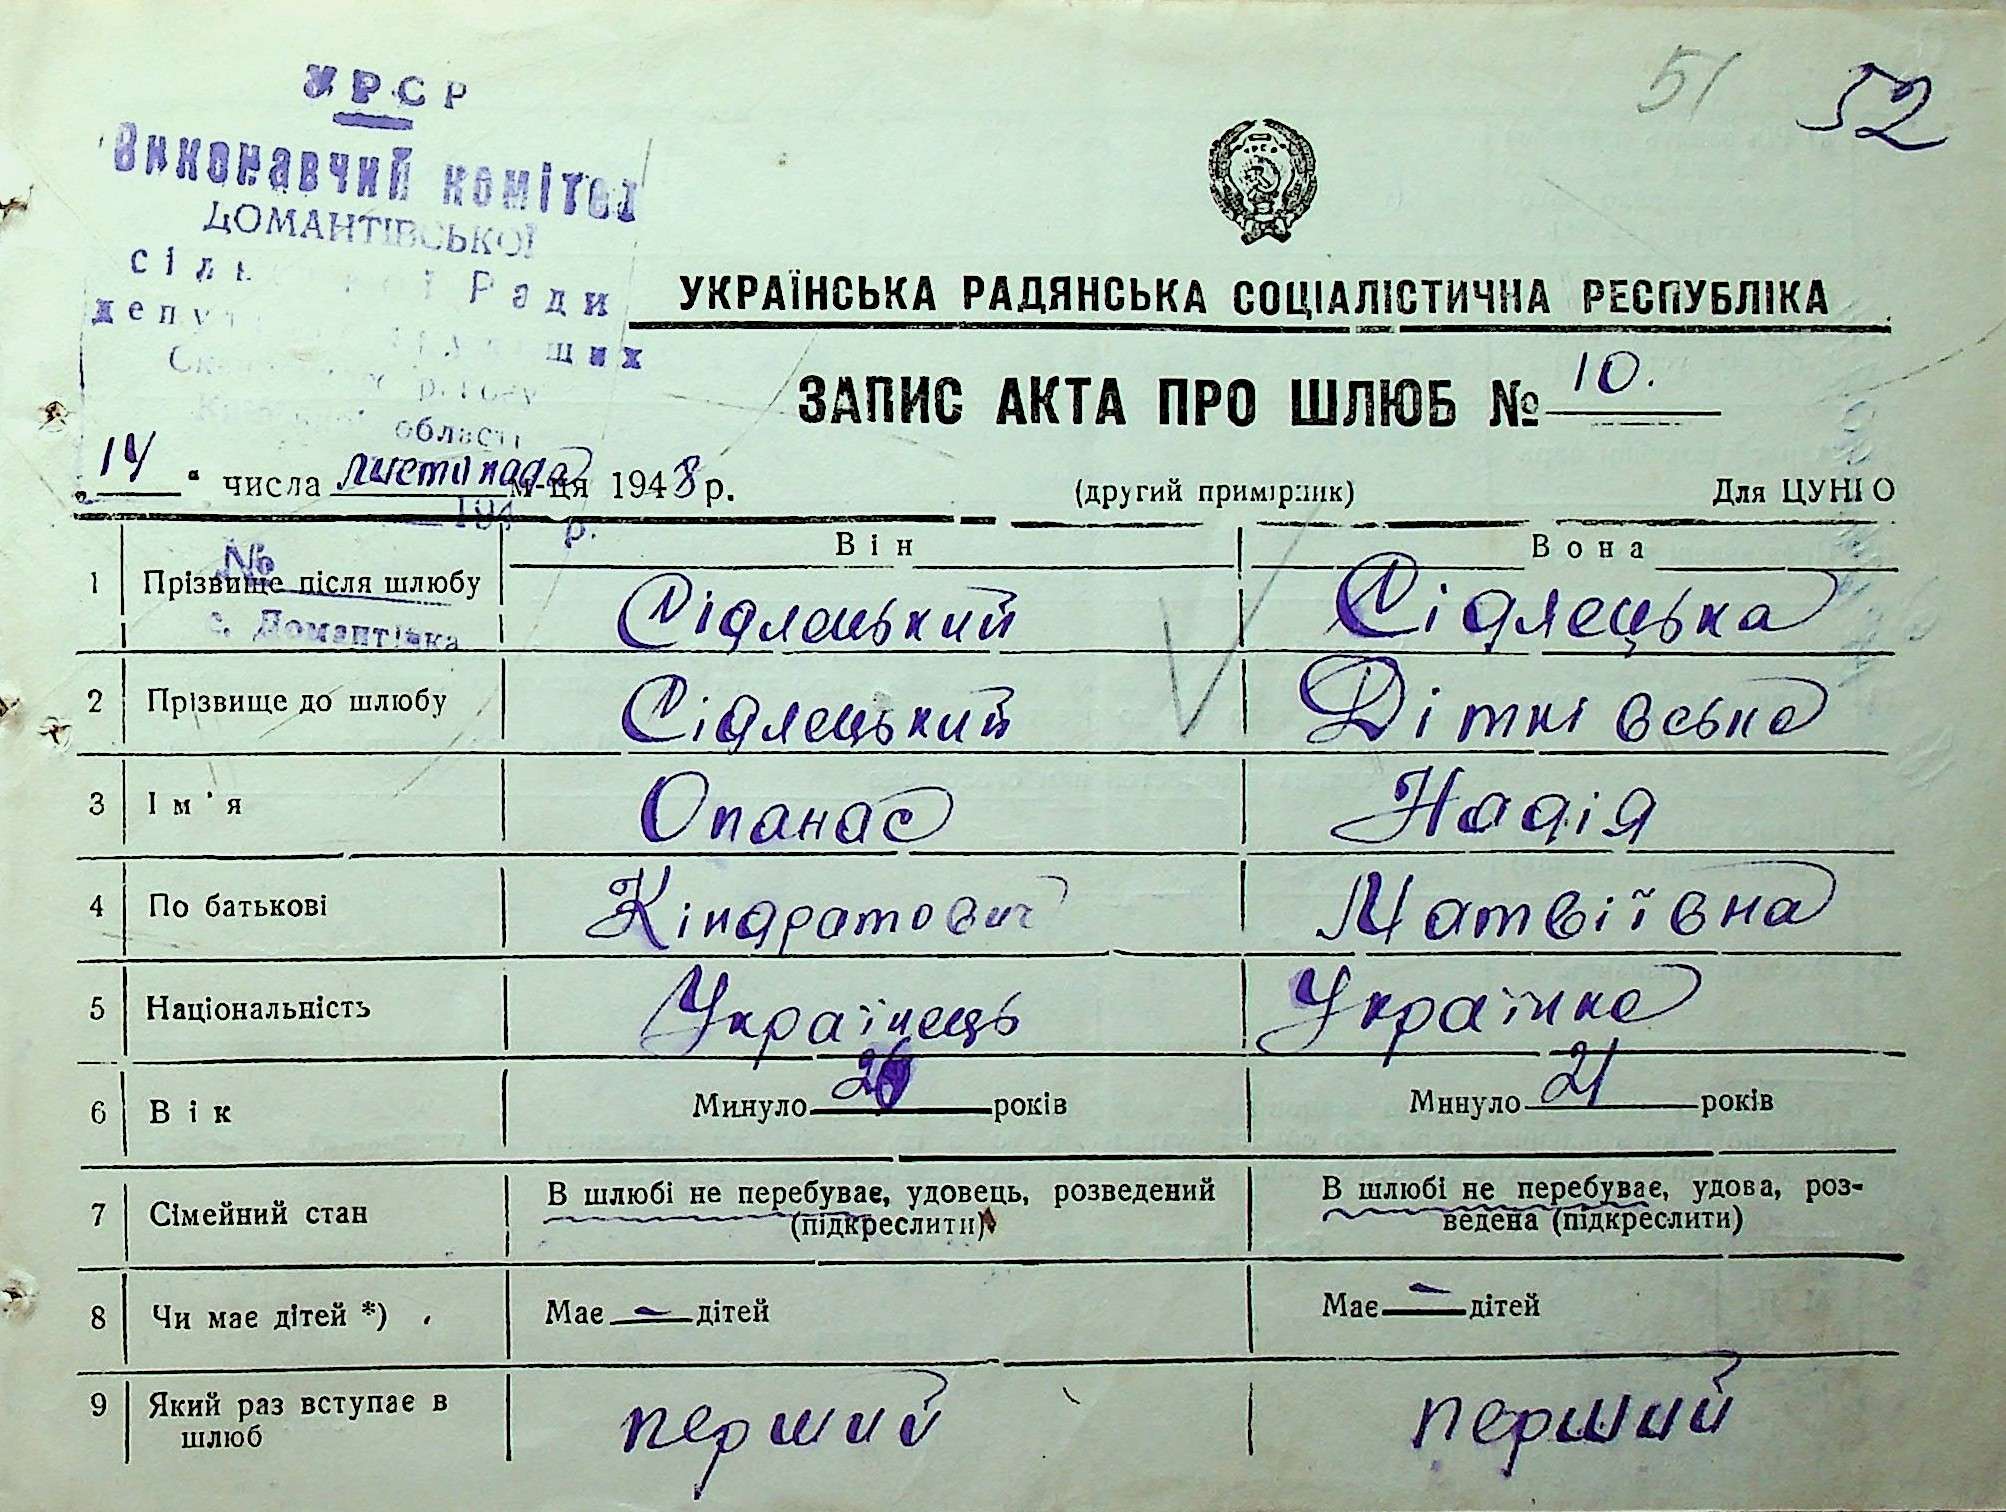 51 52
УРСР
Виконавчий комітет
ДОМАНТІВСЬКОЇ
сільської Ради
депутатів трудящих
області
194 р.
№
с. Домантівка
УКРАЇНСЬКА РАДЯНСЬКА СОЦІАЛІСТИЧНА РЕСПУБЛІКА
ЗАПИС АКТА ПРО ШЛЮБ № 10.
„14“ числа листопада м-ця 1948 р. (другий примірник) Для ЦУНГО
Він Вона
1 Прізвище після шлюбу Сідлецький Сідлецька
2 Прізвище до шлюбу Сідлецький Дітківська
3 Ім'я Опанас Надія
4 По батькові Кіндратович Матвіївна
5 Національність Українець Українка
6 Вік Минуло 26 років Минуло 21 років
7 Сімейний стан В шлюбі не перебуває, удовець, розведений В шлюбі не перебуває, удова, роз-
(підкреслити) ведена (підкреслити)
8 Чи має дітей *) Має — дітей Має — дітей
9 Який раз вступає в перший перший
шлюб